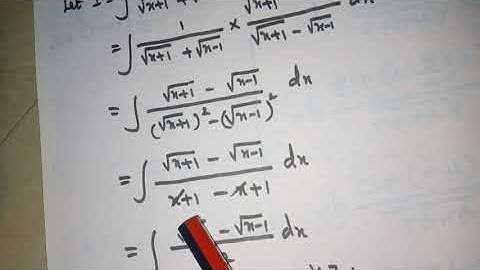 Let I = ∫ √x+1 + √
= ∫ 1/(√x+1 + √x-1) × √x+1/(√x+1 - √x-1) dx
= ∫ (√x+1 - √x-1)/((√x+1)² - (√x-1)²) dx
= ∫ (√x+1 - √x-1)/(x+1 - x+1) dx
= ∫ - √x-1 dx